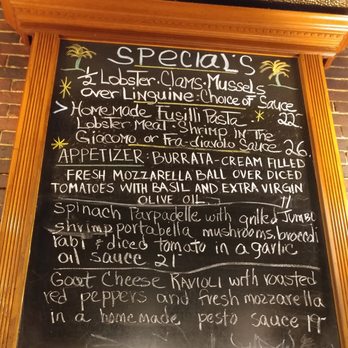 SPECIAL'S
1/2 LOBSTER·CLAMS·MUSSELS
OVER LINGUINE·CHOICE OF SAUCE
22
> HOMEMADE FUSILLI PASTA
LOBSTER MEAT·SHRIMP IN THE
GIACOMO OR FRA-DIAVOLO SAUCE 26.
APPETIZER: BURRATA-CREAM FILLED
FRESH MOZZARELLA BALL OVER DICED
TOMATOES WITH BASIL AND EXTRA VIRGIN
OLIVE OIL 11
Spinach Parpadelle with grilled Jumbo
shrimp portabella mushrooms, broccoli
rabi + diced tomato in a garlic
oil sauce 21
Goat Cheese Ravioli with roasted
red peppers and fresh mozzarella
in a homemade pesto sauce 19